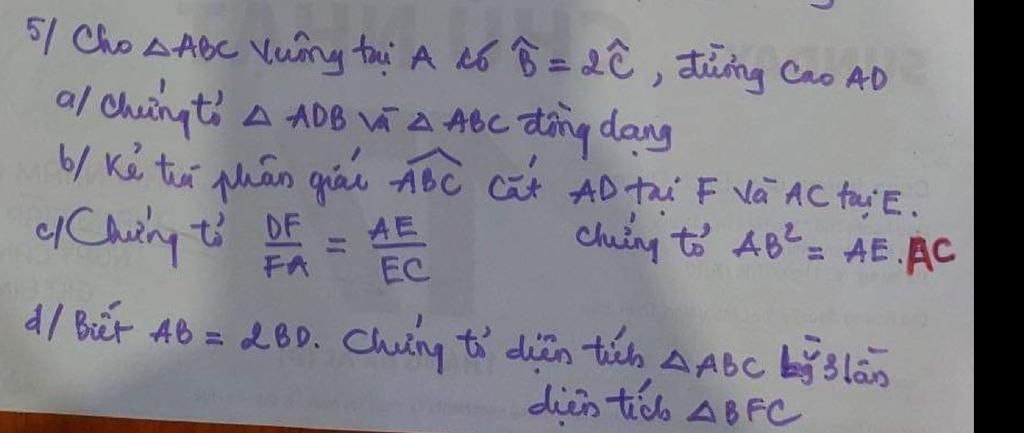 5/ Cho △ABC vuông tại A có B̂ = 2Ĉ, đường cao AD
a/ Chứng tỏ △ ADB và △ ABC đồng dạng
b/ Kẻ tia phân giác ABC cắt AD tại F và AC tại E.
Chứng tỏ AB² = AE.AC
c/ Chứng tỏ DF/FA = AE/EC
d/ Biết AB = 2BD. Chứng tỏ diện tích △ABC bằng 3 lần
diện tích △BFC